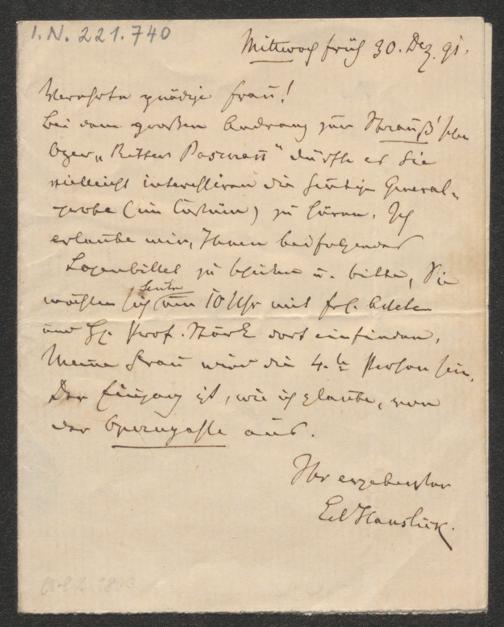 I.N. 221.740
Mittwoch früh 30. Dez. 91.
Verehrte gnädige Frau!
Bei dem großen Andrang zur Strauß'schen
Oper „Ritter Pasman" dürfte es Sie
vielleicht interessiren die heutige General-
probe (im Costüm) zu hören. Ich
erlaube mir, Ihnen beifolgendes
Logenbillet zu schicken u. bitte, Sie
möchten sich heute um 10 Uhr mit frl.
und H. Prof. Störk dort einfinden.
Meine Frau wird die 4.te Person sein.
Der Eingang ist, wie ich glaube, von
der Operngasse aus.
Ihr ergebenster
Ed Hanslick.